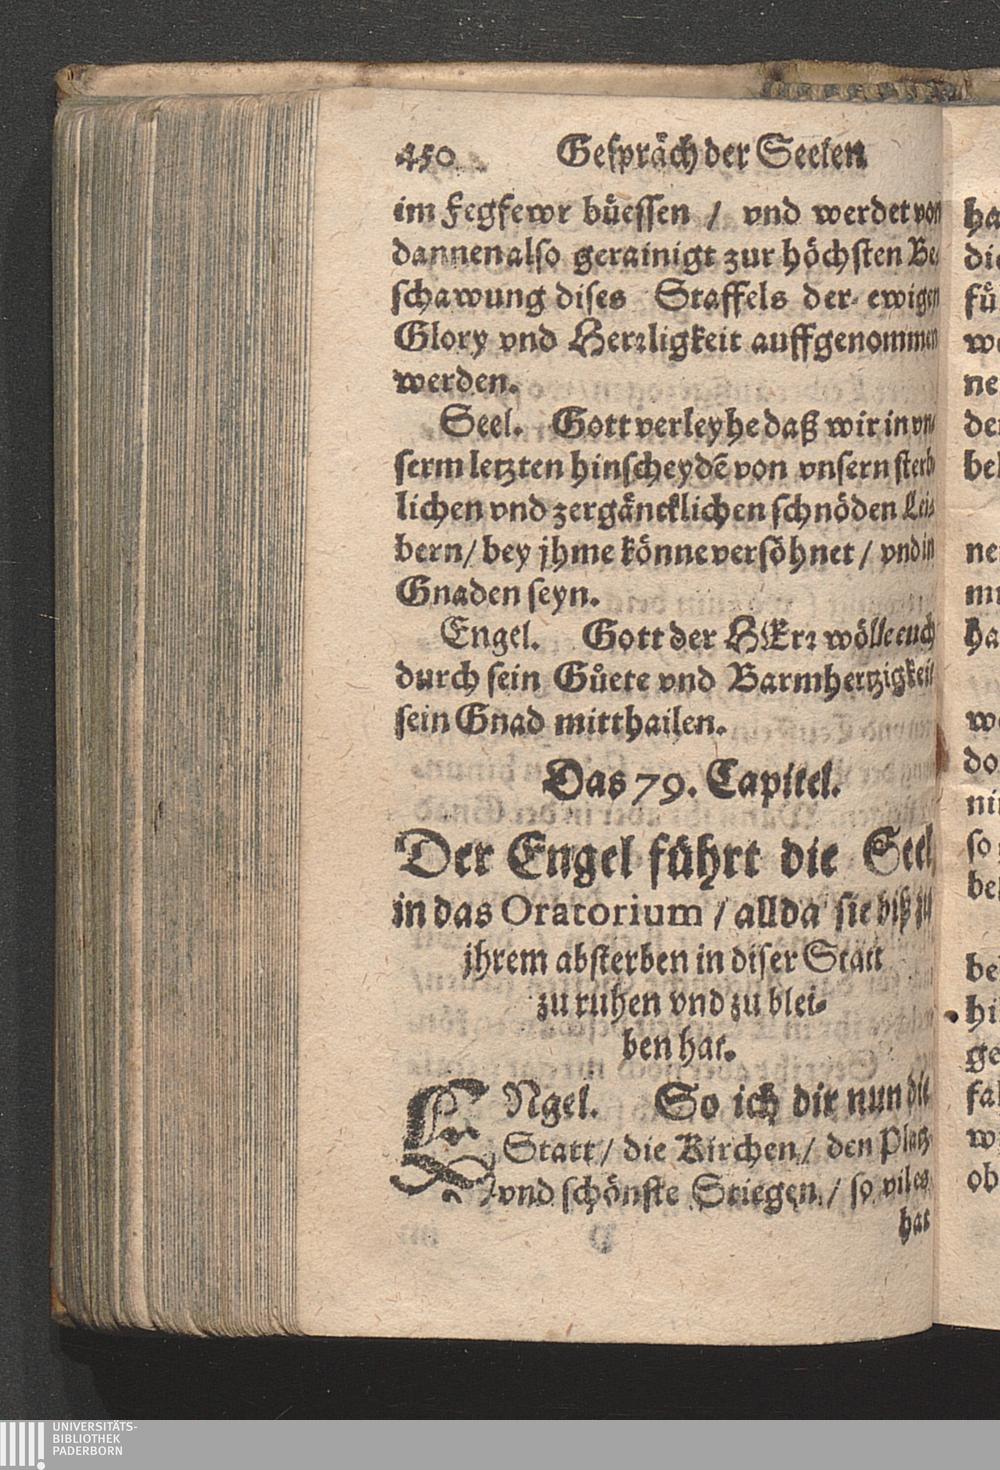 450 Gespräch der Seelen
im Fegfewr büessen / vnd werdet von
dannen also gerainigt zur höchsten Be-
schawung dises Staffels der ewigen
Glory vnd Herꝛligkeit auffgenommen
werden.
Seel. Gott verleyhe daß wir in vn-
serm letzten hinscheydẽ von vnsern sterb-
lichen vnd zergäncklichen schnöden Lei-
bern / bey jhme könne versöhnet / vnd in
Gnaden seyn.
Engel. Gott der HErꝛ wölle euch
durch sein Gůete vnd Barmhertzigkeit
sein Gnad mitthailen.
Das 79. Capitel.
Der Engel führt die Seel
in das Oratorium / allda sie biß zu
jhrem absterben in diser Statt
zu ruhen vnd zu blei-
ben hat.
ENgel. So ich dir nun die
Statt / die Kirchen / den Platz
vnd schönste Stiegen / so vil es
hat
ha
die
fů
we
ne
der
bel
ne
mi
ha
we
do
ni
so
bel
be
hi
ge
fal
w
ob
UNIVERSITÄTS-
BIBLIOTHEK
PADERBORN